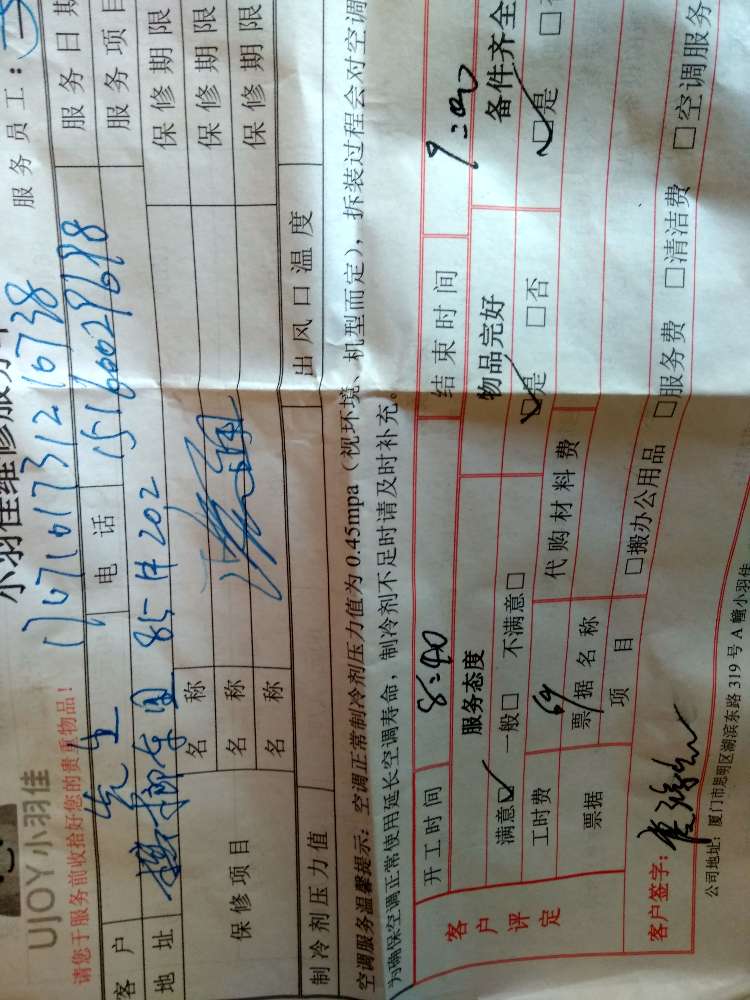 小羽佳维修服务单
服务员工：
UJOY小羽佳
请您于服务前收拾好您的贵重物品！
客户 先生 电话 15160029698 服务日期
地址 85井202 服务项目
保修项目 名称 保修期限
名称 保修期限
名称 保修期限
制冷剂压力值 出风口温度
空调服务温馨提示：空调正常制冷剂压力值为 0.45mpa（视环境、机型而定），拆装过程会对空调
为确保空调正常使用延长空调寿命，制冷剂不足时请及时补充。
客户评定 开工时间 8:40 结束时间 9:00
服务态度 物品完好 备件齐全
满意☑ 一般□ 不满意□ ☑是 □否 ☑是
工时费 69 代购材料费
票据 票据名称
项目 □搬办公用品 □服务费 □清洁费 □空调服务
客户签字：
公司地址：厦门市思明区湖滨东路 319 号 A 幢小羽佳